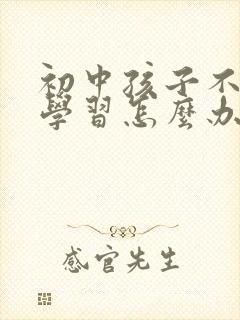 初中孩子不
學習怎麼办
感官先生